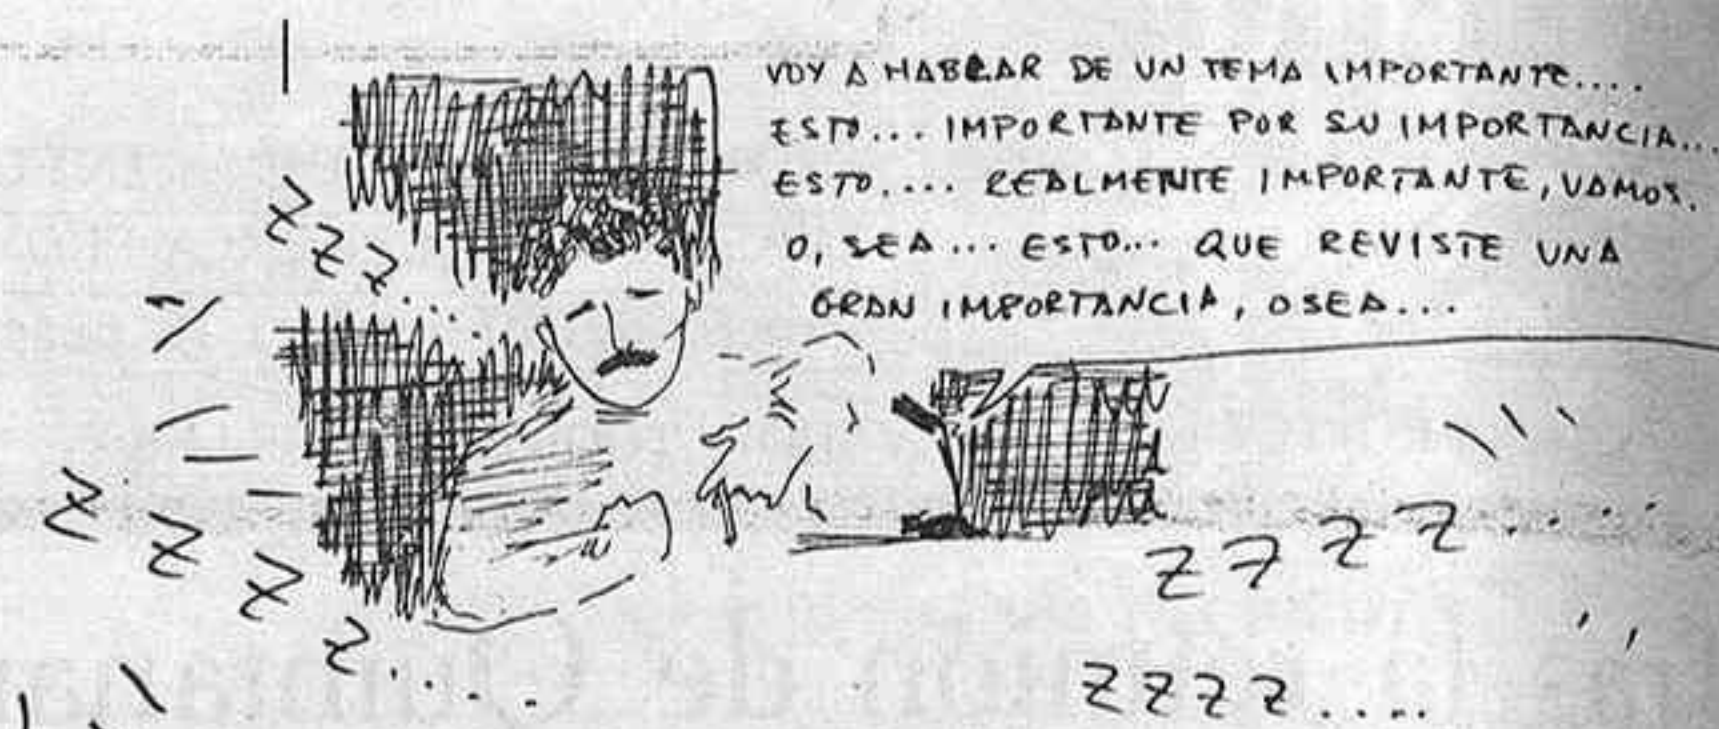 VOY A HABLAR DE UN TEMA IMPORTANTE....
ESTO... IMPORTANTE POR SU IMPORTANCIA...
ESTO.... REALMENTE IMPORTANTE, VAMOS.
O, SEA... ESTO... QUE REVISTE UNA
GRAN IMPORTANCIA, OSEA...
ZZZ....
ZZZZ....
ZZZZ.....
ZZZZ....